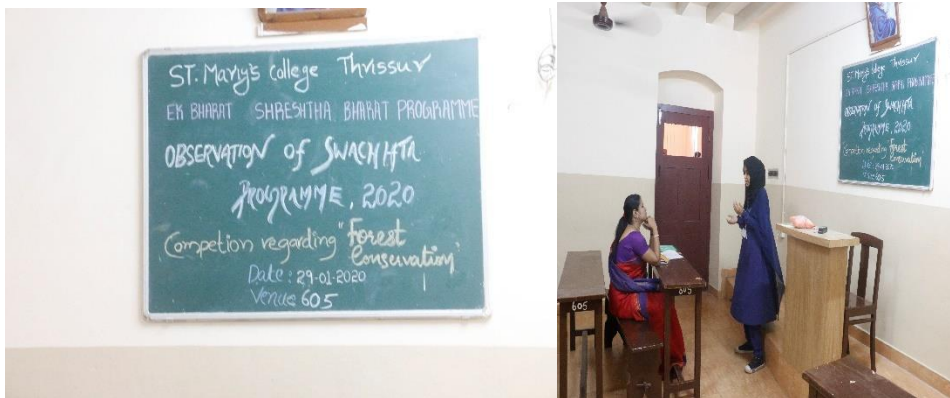 ST. Mary's College Thrissur
EK BHARAT SHRESHTHA BHARAT PROGRAMME
OBSERVATION of SWACHHTA
PROGRAMME, 2020
Competion regarding "Forest
Conservation"
Date: 29-01-2020
Venue 605
ST. Mary's College Thrissur
EK BHARAT SHRESHTHA BHARAT PROGRAMME
OBSERVATION of SWACHHTA
PROGRAMME, 2020
Competion regarding "Forest
Conservation"
605
605
605